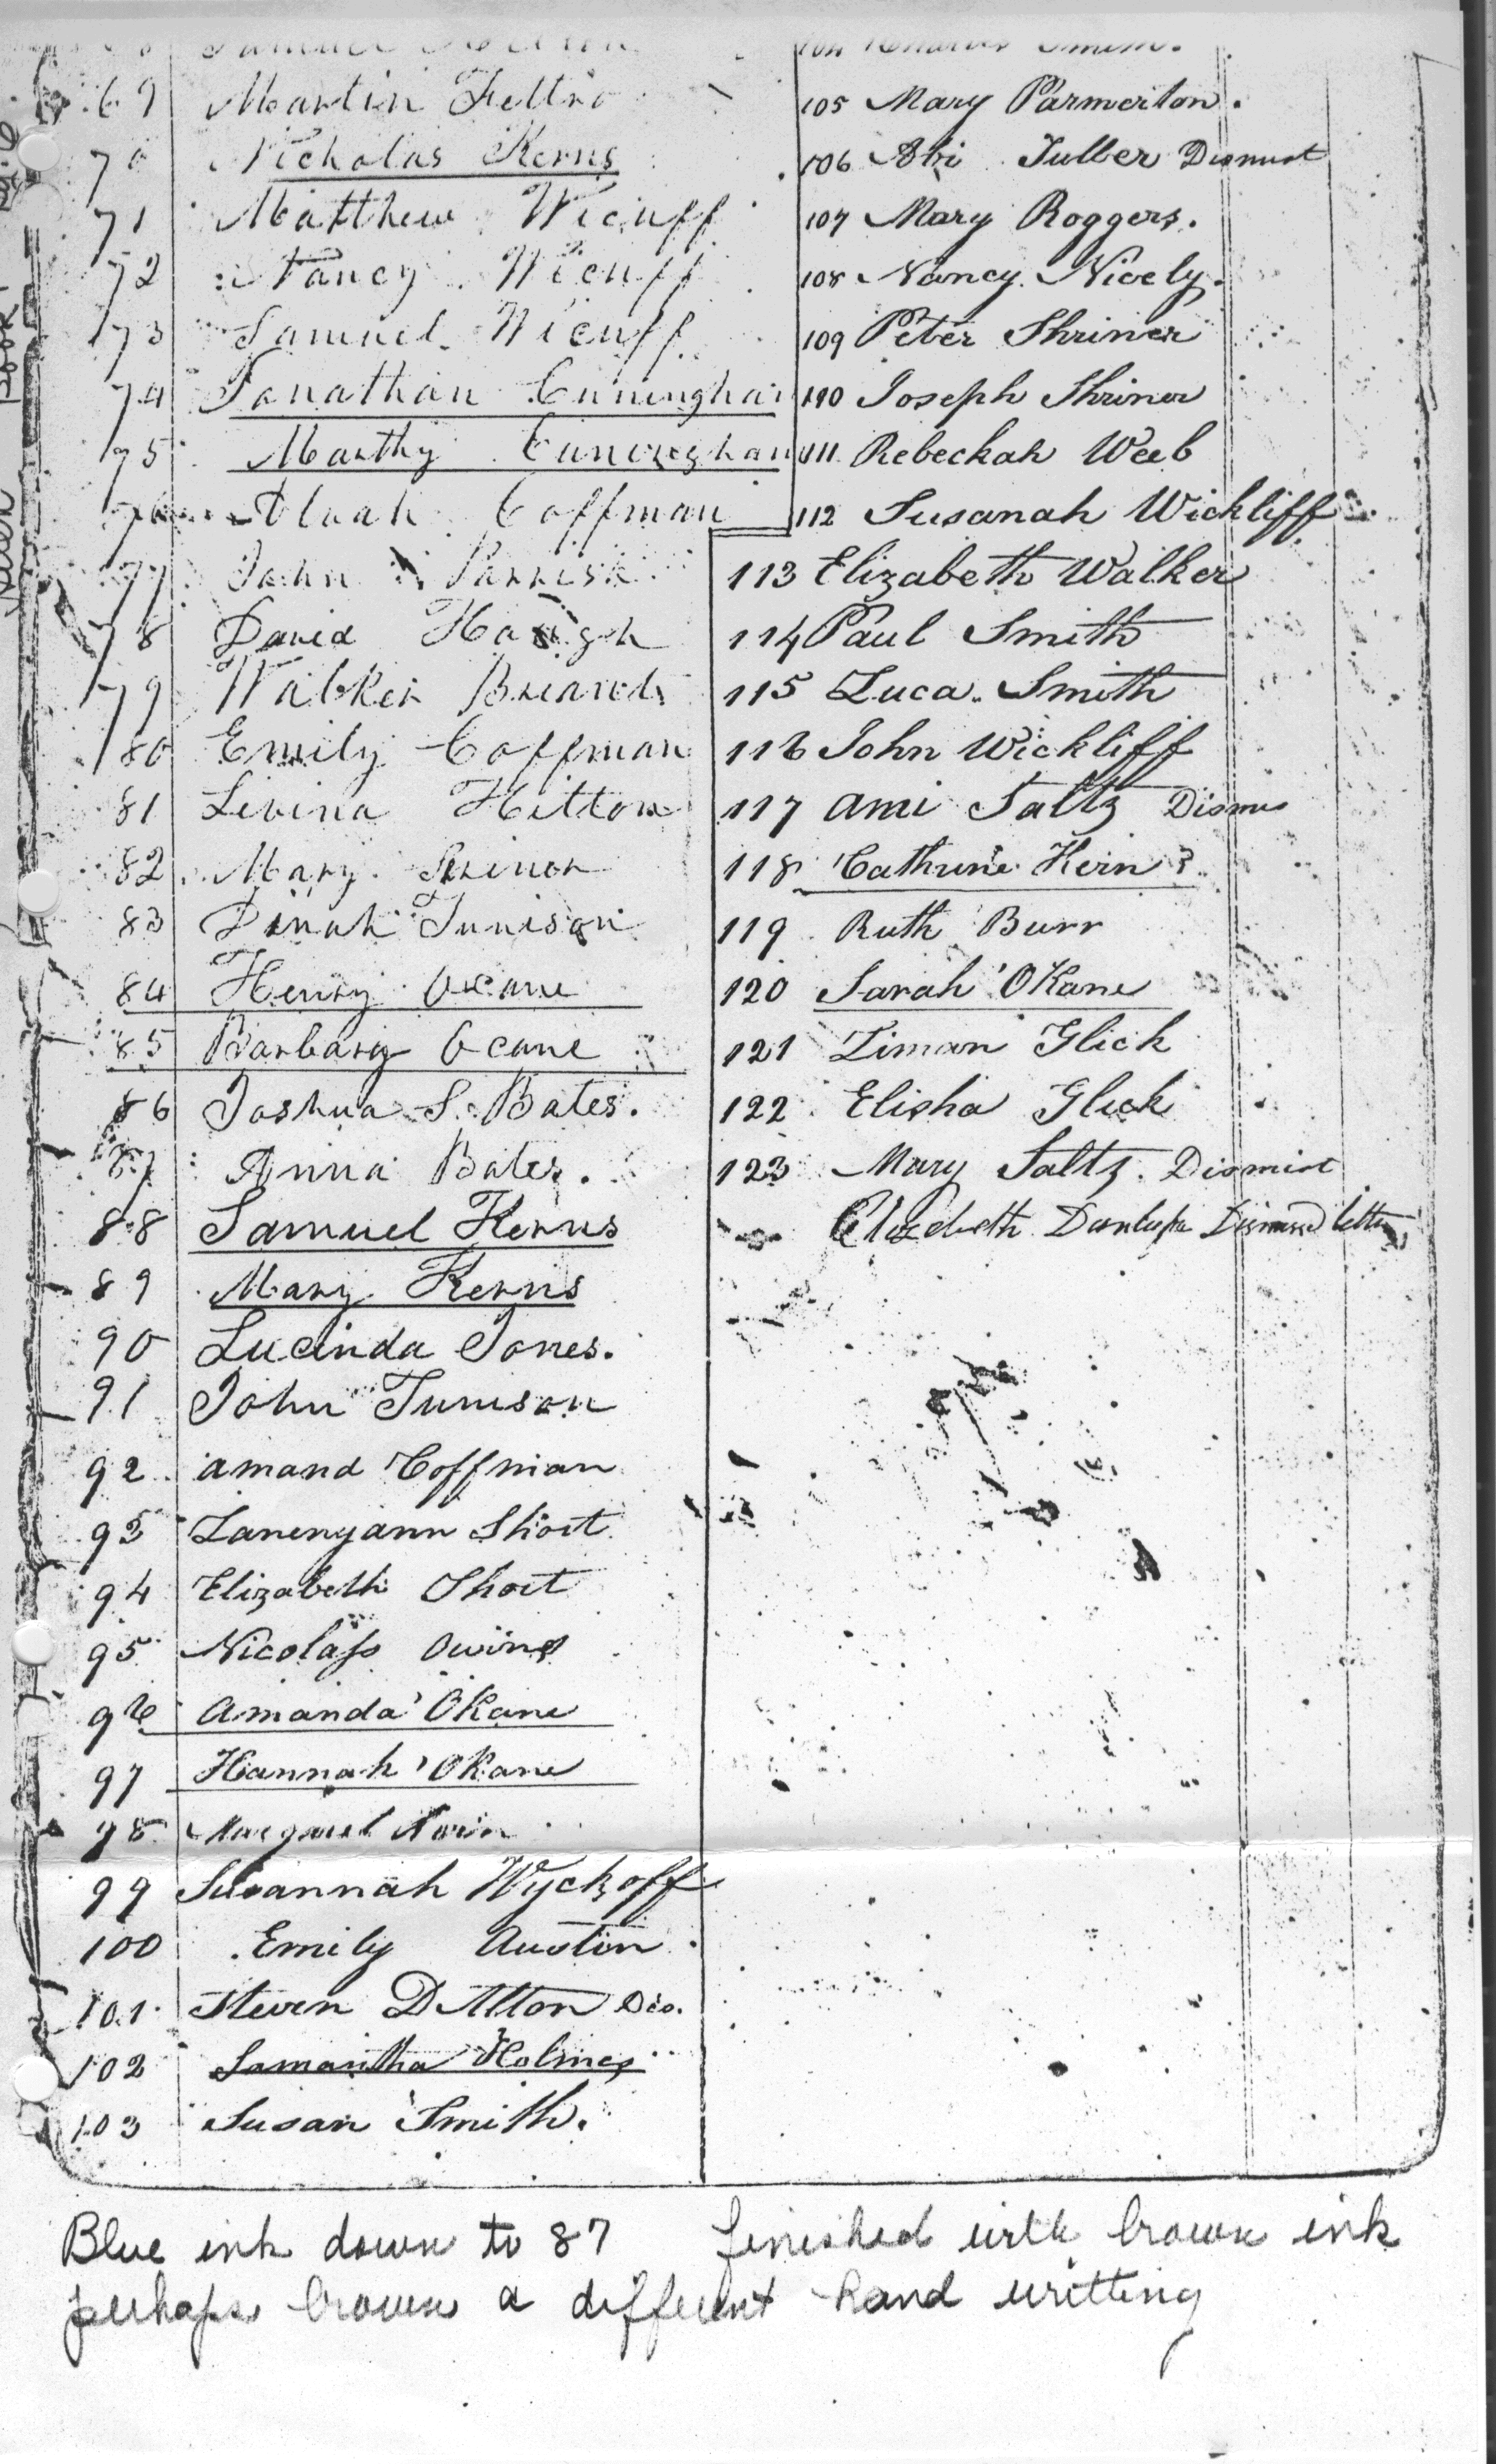 69 Martin Feltro
70 Nicholas Kerns
71 Matthew Wicuff
72 Nancy Wicuff
73 Samuel Wicuff
74 Jonathan Cuningham
75 Marthy Cuningham
76 Noah Coffman
77 John Parrish
78 David Hough
79 Walker Briand
80 Emily Coffman
81 Levina Hitton
82 Mary
83 Dinah Tunison
84 Henry Ocane
85 Barbary Ocane
86 Joshua S. Bates.
87 Anna Bates.
88 Samuel Kerns
89 Mary Kerns
90 Lucinda Jones.
91 John Tunison
92 amand Coffman
93 Short
94 Elizabeth Short
95 Nicolass Owing
96 Amanda OKane
97 Hannah OKane
98 Margaret
99 Susannah Wyckoff
100 Emily Austin
101 Steven Ditton Dis.
102 Samantha Holmes
103 Susan Smith.
104 Smith.
105 Mary Parmerton.
106 Abi Fuller Dismist
107 Mary Roggers.
108 Nancy Nicely.
109 Peter Shriner
110 Joseph Shriner
111 Rebeckah Weeb
112 Susanah Wickliff
113 Elizabeth Walker
114 Paul Smith
115 Luca Smith
116 John Wickliff
117 Ami Saltz Dismis
118 Cathrine Kern?
119 Ruth Burr
120 Sarah OKane
121 Liman Glick
122 Elisha Glick
123 Mary Saltz. Dismist
Elizabeth Dunlap Dismissed letter
Blue ink down to 87 finished with brown ink
perhaps brown a different hand writting